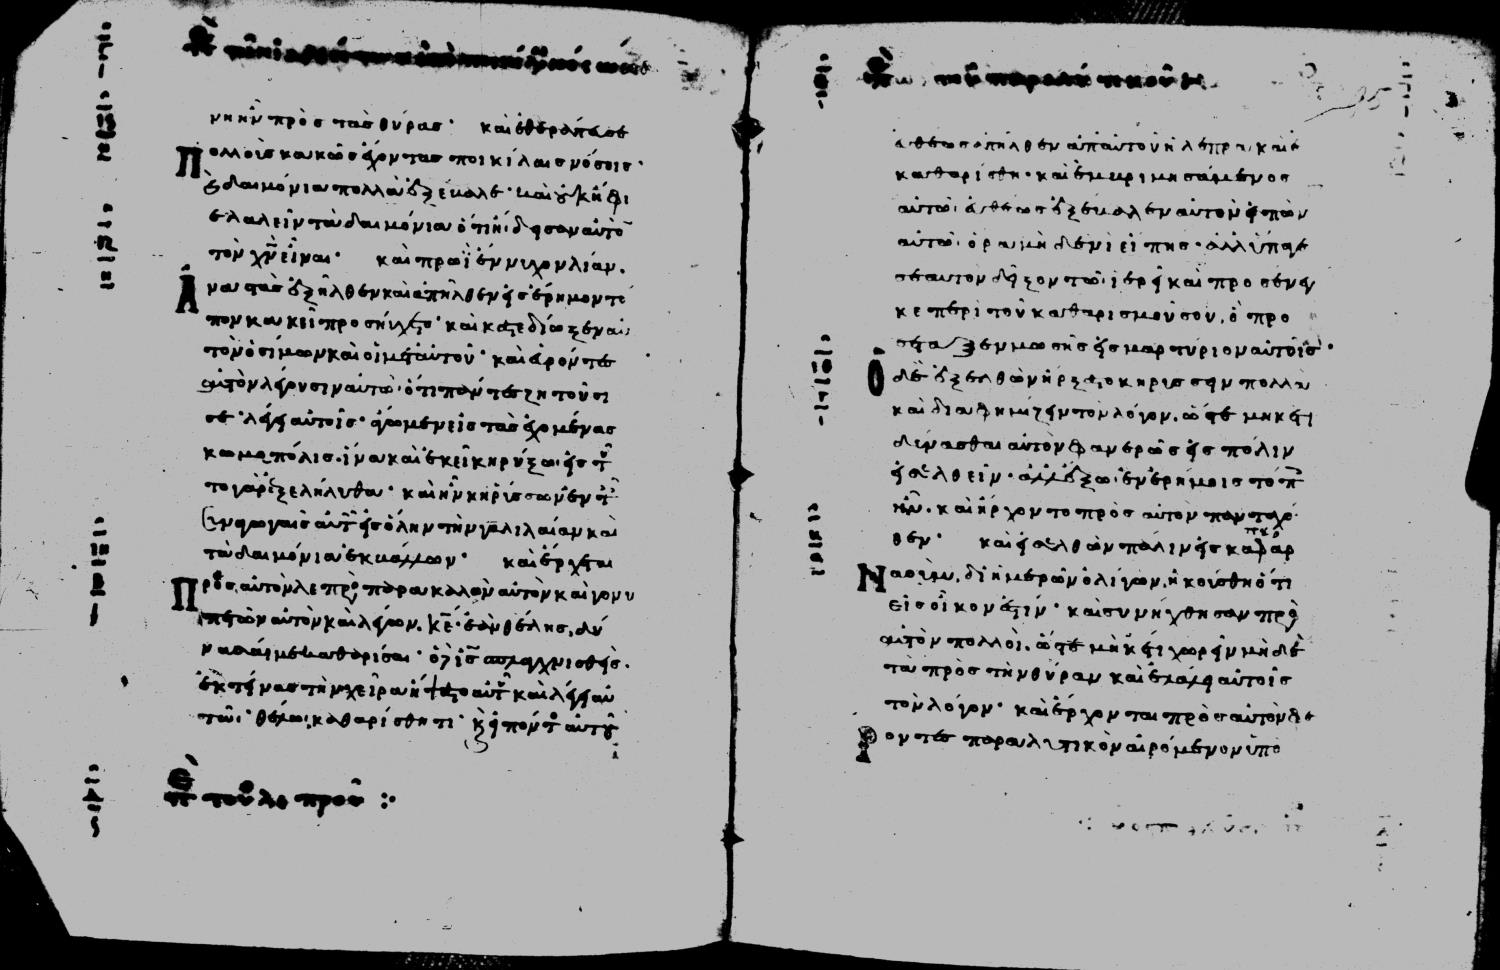 νη ἦν πρὸς τὰς θύρας· καὶ ἐθεράπευσε
πολλοὺς κακῶς ἔχοντας ποικίλαις νόσοις·
δαιμόνια πολλὰ ἐξέβαλε·
λαλεῖν τὰ δαιμόνια ὅτι ἤδεισαν αὐτὸ
τὸν χν εἶναι· καὶ πρωῒ ἔννυχον λίαν.
Ἀναστὰς ἐξῆλθεν καὶ ἀπῆλθεν εἰς ἔρημον τό
πον κακεῖ προσηύχετο· καὶ κατεδίωξεν αὐ
τὸν ὁ σίμων καὶ οἱ μετ αὐτοῦ· καὶ εὑρόντες
αὐτὸν λέγουσιν αὐτῶ· ὅτι πάντες ζητοῦσι
σε· λέγει αὐτοῖς· ἄγωμεν εἰς τὰς ἐχομένας
κωμοπόλις. ἵνα καὶ ἐκεῖ κηρύξω· εἰς τ
το γὰρ ἐξελήλυθα· καὶ ἦν κηρύσσων ἐν τ
συναγωγαῖς αὐτ εἰς ὅλην τὴν γαλιλαίαν καὶ
τὰ δαιμόνια ἐκβάλλων· καὶ ἔρχεται
Πρὸς αὐτὸν λεπρὸς παρακαλῶν αὐτὸν καὶ γονυ
πετῶν αὐτὸν καὶ λέγων. κε· ἐὰν θέλης, δύ
νασαί με καθαρίσαι· ὁ δὲ ις σπλαγχνισθεὶς.
ἐκτείνας τὴν χεῖρα ἥψατο αὐτ καὶ λέγει αὐ
τῶ· θέλω, καθαρίσθητι· κ εἰπόντ αὐτοῦ
τοῦ λεπροῦ :·
τοῦ παραλυτικοῦ
εὐθέως ἀπῆλθεν ἀπ αὐτοῦ ἡ λέπρα, καὶ ἐ
καθαρίσθη· καὶ ἐμβριμησάμενος
αὐτῶ. εὐθέως ἐξέβαλεν αὐτὸν εἰπὼν
αὐτῶ. ὅρα μὴ δενὶ εἴπης· ἀλλ ὕπαγε
σεαυτὸν δεῖξον τῶ ἱερεῖ καὶ προσένεγ
κε περὶ τοῦ καθαρισμοῦ σου, ὃ προ
σέταξεν μωσῆς εἰς μαρτύριον αὐτοῖς·
Ὁ δὲ ἐξελθὼν ἤρξατο κηρύσσειν πολλὰ
καὶ διαφημίζειν τὸν λόγον. ὥστε μηκέτι
δύνασθαι αὐτὸν φανερῶς εἰς πόλιν
εἰσελθεῖν· ἀλλ ἔξω. ἐν ἐρήμοις τόπ
ἦν. καὶ ἤρχοντο πρὸς αὐτὸν πανταχό
θεν· καὶ εἰσελθὼν πάλιν εἰς καφαρ
Ναοὺμ. δι ἡμερῶν ὀλίγων, ἠκούσθη ὅτι
εἰς οἶκον ἐστίν· καὶ συνήχθησαν πρὸ
αὐτὸν πολλοὶ. ὥστε μηκέτι χωρεῖν μὴ δὲ
τὰ πρὸς τὴν θύραν καὶ ἐλάλει αὐτοῖς
τὸν λόγον· καὶ ἔρχονται πρὸς αὐτὸν φέ
ροντες παραλυτικὸν αἰρόμενον ὑπὸ